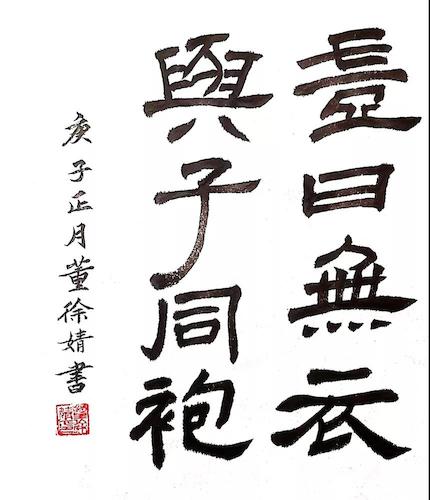 豈曰無衣
與子同袍
庚子正月董徐婧書